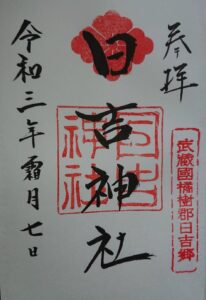 奉拝
武蔵國橘樹郡日吉郷
日吉神社
日吉神社
令和三年霜月七日